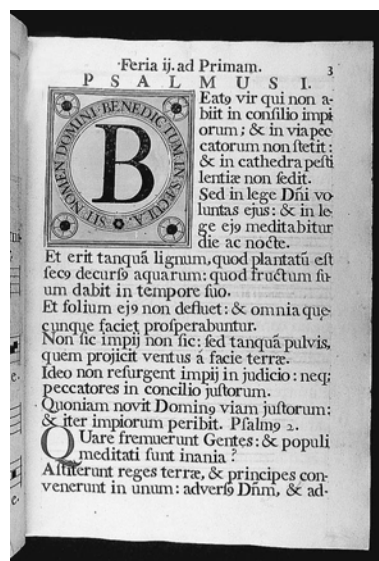 Feria ij. ad Primam. 3
PSALMUS I.
SIT NOMEN DOMINI BENEDICTUM IN SÆCULA.
B
Eatꝰ vir qui non a-
biit in conſilio impi
orum; & in via pec
catorum non ſtetit:
& in cathedra peſti
lentiæ non ſedit.
Sed in lege Dñi vo
luntas ejus: & in le
ge ejꝰ meditabitur
die ac nocte.
Et erit tanquã lignum, quod plantatũ eſt
ſecꝰ decurſꝰ aquarum: quod fructum ſu-
um dabit in tempore ſuo.
Et folium ejꝰ non defluet: & omnia que-
cunque faciet proſperabuntur.
Non ſic impij non ſic: ſed tanquã pulvis,
quem projicit ventus â facie terræ.
Ideo non reſurgent impij in judicio: neq;
peccatores in concilio juſtorum.
Quoniam novit Dominꝰ viam juſtorum:
& iter impiorum peribit. Pſalmꝰ 2.
QUare fremuerunt Gentes: & populi
meditati ſunt inania?
Aſtiterunt reges terræ, & principes con-
venerunt in unum: adverſꝰ Dñm, & ad-